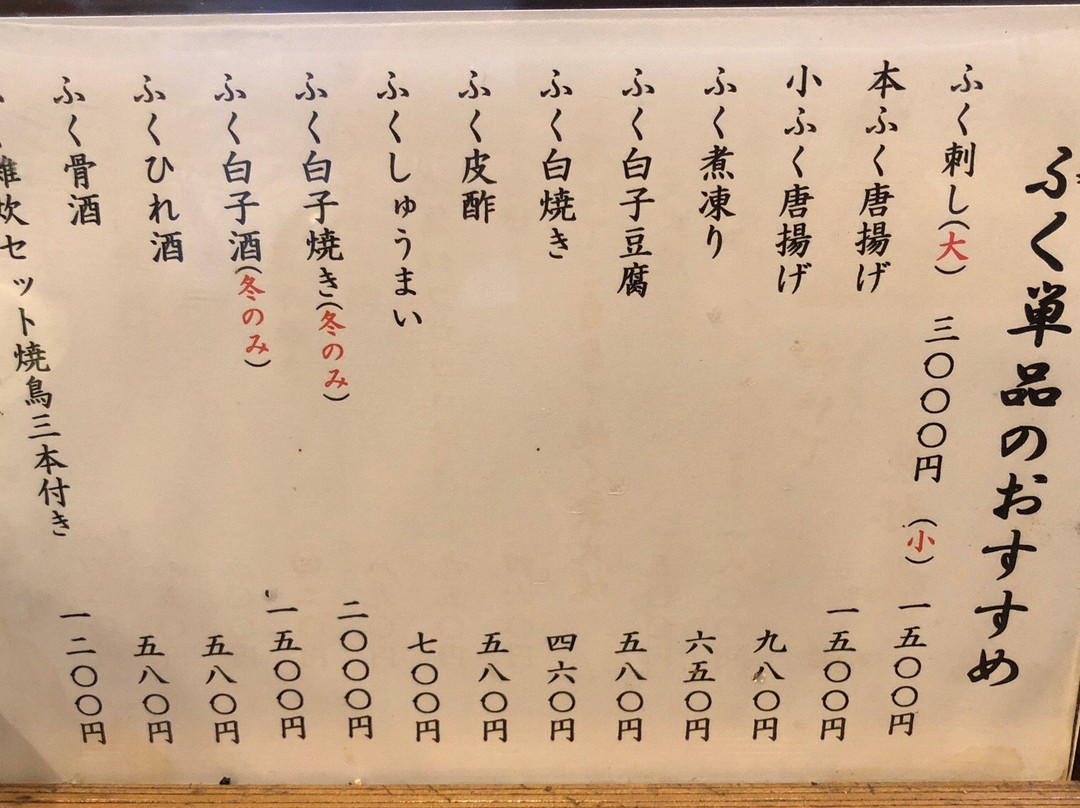 ふく単品のおすすめ
ふく刺し(大) 三〇〇〇円 (小) 一五〇〇円
本ふく唐揚げ 一五〇〇円
小ふく唐揚げ 九八〇円
ふく煮凍り 六五〇円
ふく白子豆腐 五八〇円
ふく白焼き 四六〇円
ふく皮酢 五八〇円
ふくしゅうまい 七〇〇円
ふく白子焼き(冬のみ) 二〇〇〇円
ふく白子酒(冬のみ) 一五〇〇円
ふくひれ酒 五八〇円
ふく骨酒 五八〇円
ふく雑炊セット焼鳥三本付き 一二〇〇円